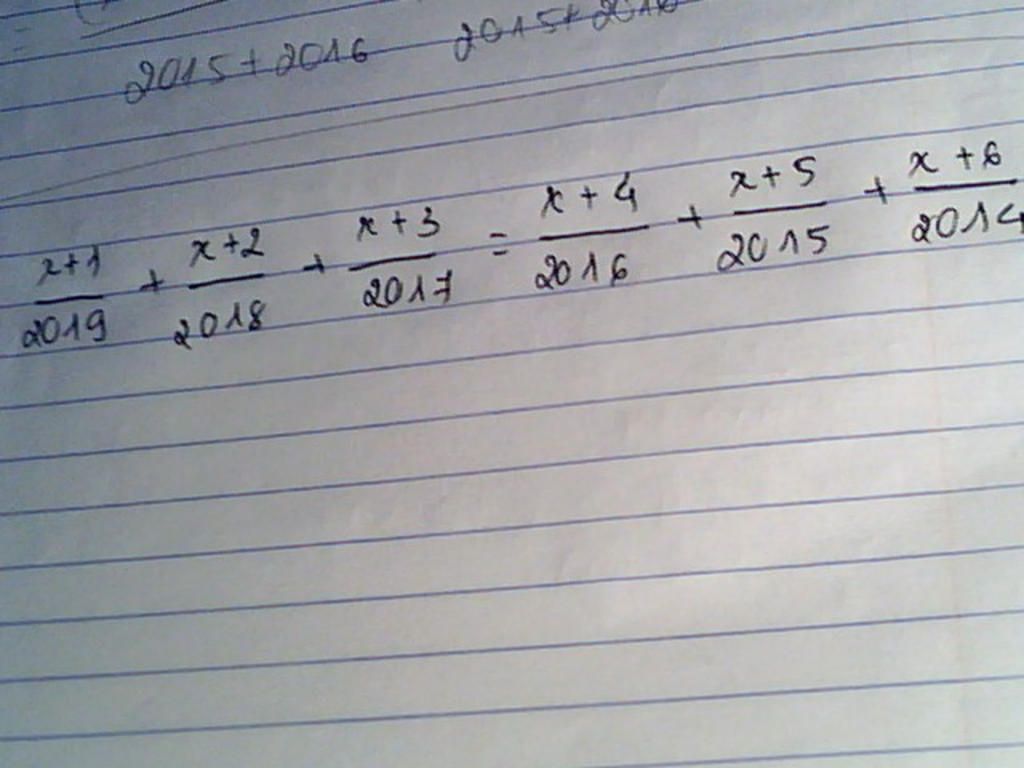 2015+2016 2015+2016
x+1/2019 + x+2/2018 + x+3/2017 = x+4/2016 + x+5/2015 + x+6/2014